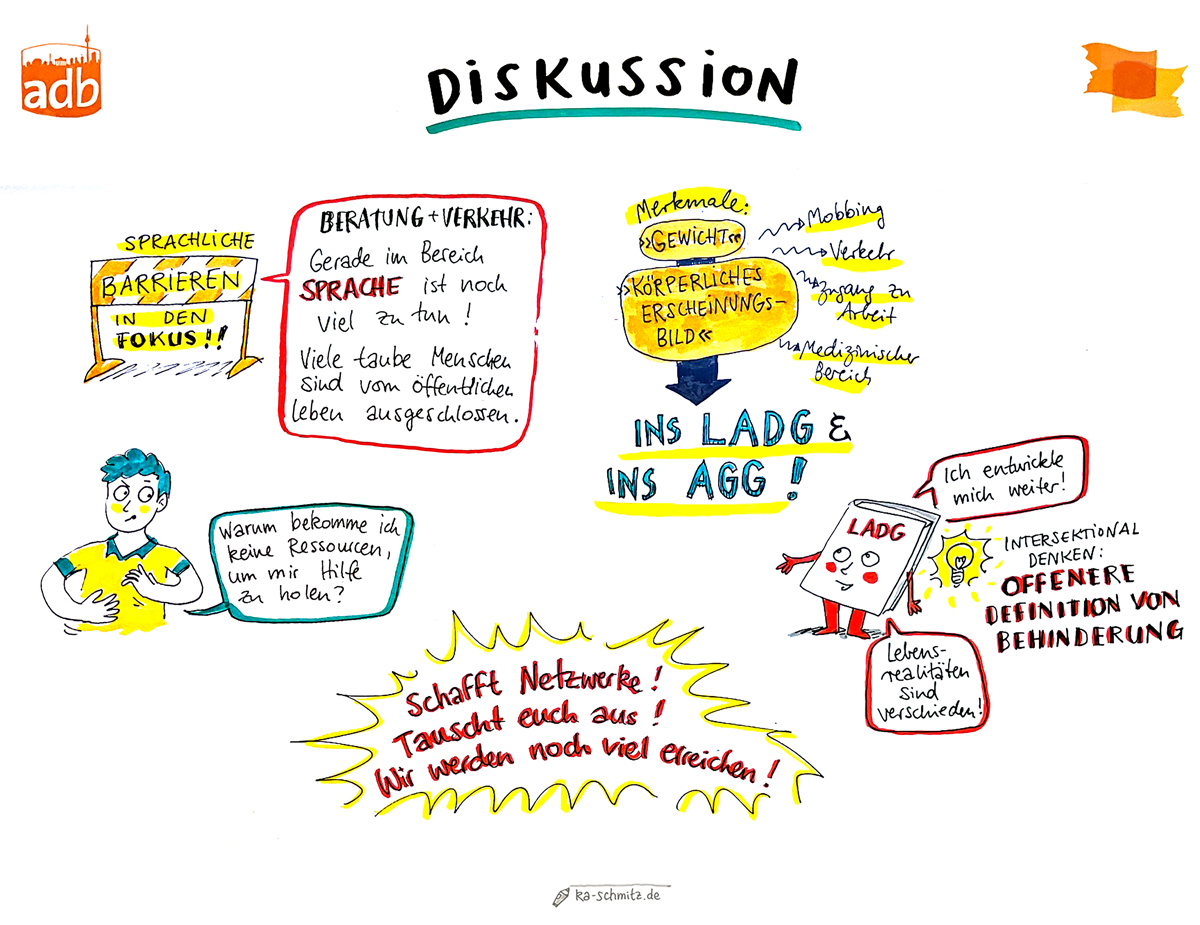 adb
DiSKUSSiON
SPRACHLICHE
BARRIEREN
IN DEN
FOKUS!!
BERATUNG + VERKEHR:
Gerade im Bereich
SPRACHE ist noch
viel zu tun!
Viele taube Menschen
sind vom öffentlichen
leben ausgeschlossen.
Merkmale:
»GEWICHT«
»KÖRPERLICHES
ERSCHEINUNGS-
BILD«
Mobbing
Verkehr
Zugang zu
Arbeit
Medizinischer
Bereich
INS LADG &
INS AGG!
Warum bekomme ich
keine Ressourcen,
um mir Hilfe
zu holen?
Ich entwickle
mich weiter!
LADG
INTERSEKTIONAL
DENKEN:
OFFENERE
DEFINITION VON
BEHINDERUNG
Lebens-
realitäten
sind
verschieden!
Schafft Netzwerke!
Tauscht euch aus!
Wir werden noch viel erreichen!
ka-schmitz.de